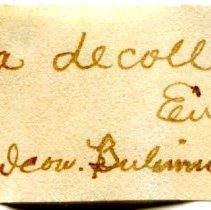 a decoll
Eu
dcow. Bulimu